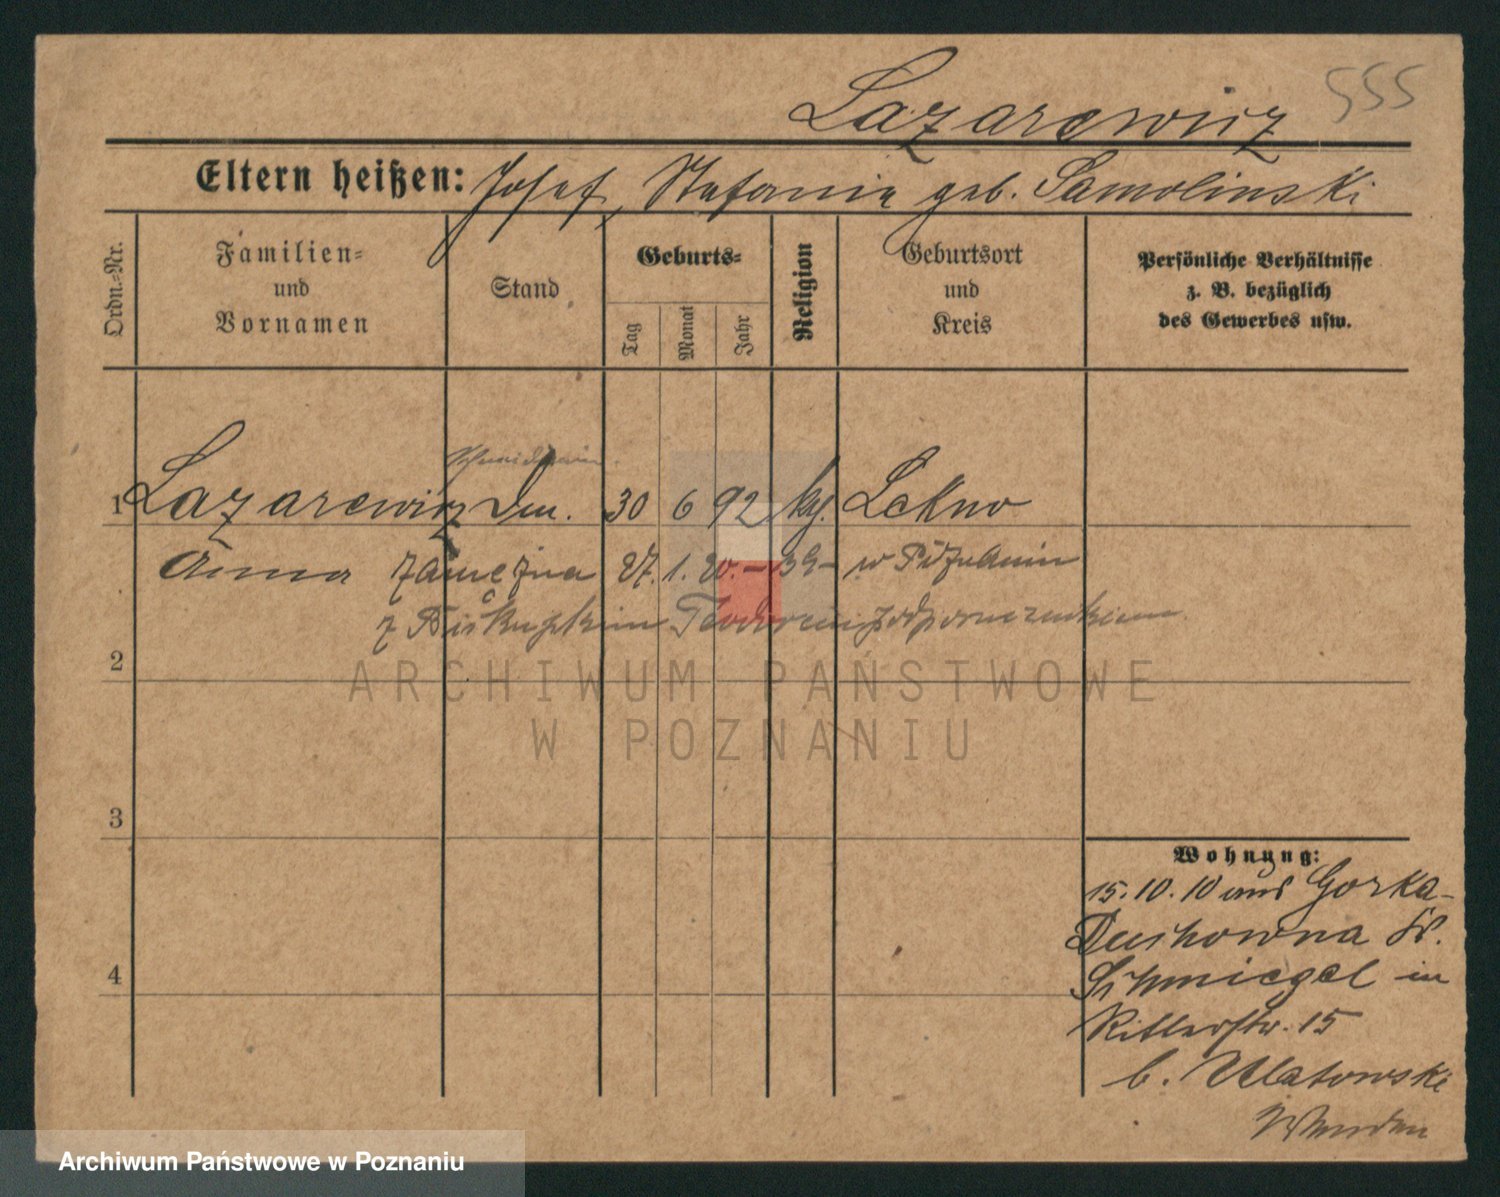 555
Lazarewicz
Eltern heißen: Josef, Stefanie geb. Samolinski
Ordn.-Nr.
Familien- und Vornamen
Stand
Geburts-
Tag
Monat
Jahr
Religion
Geburtsort und Kreis
Persönliche Verhältnisse z. B. bezüglich des Gewerbes usw.
Schneiderin
1 Lazarewicz 30 6 92 kg. Lekno
Anna zamężna 27. 1. 20. – 39 – w Poznaniu
z Biskupskim Teodorem
2
3
4
Wohnung:
15.10.10 aus Gorka-
Duchowna Kr.
Schmiegel in
Ritterstr. 15
b. Ulatowski
ARCHIWUM PAŃSTWOWE
W POZNANIU
Archiwum Państwowe w Poznaniu